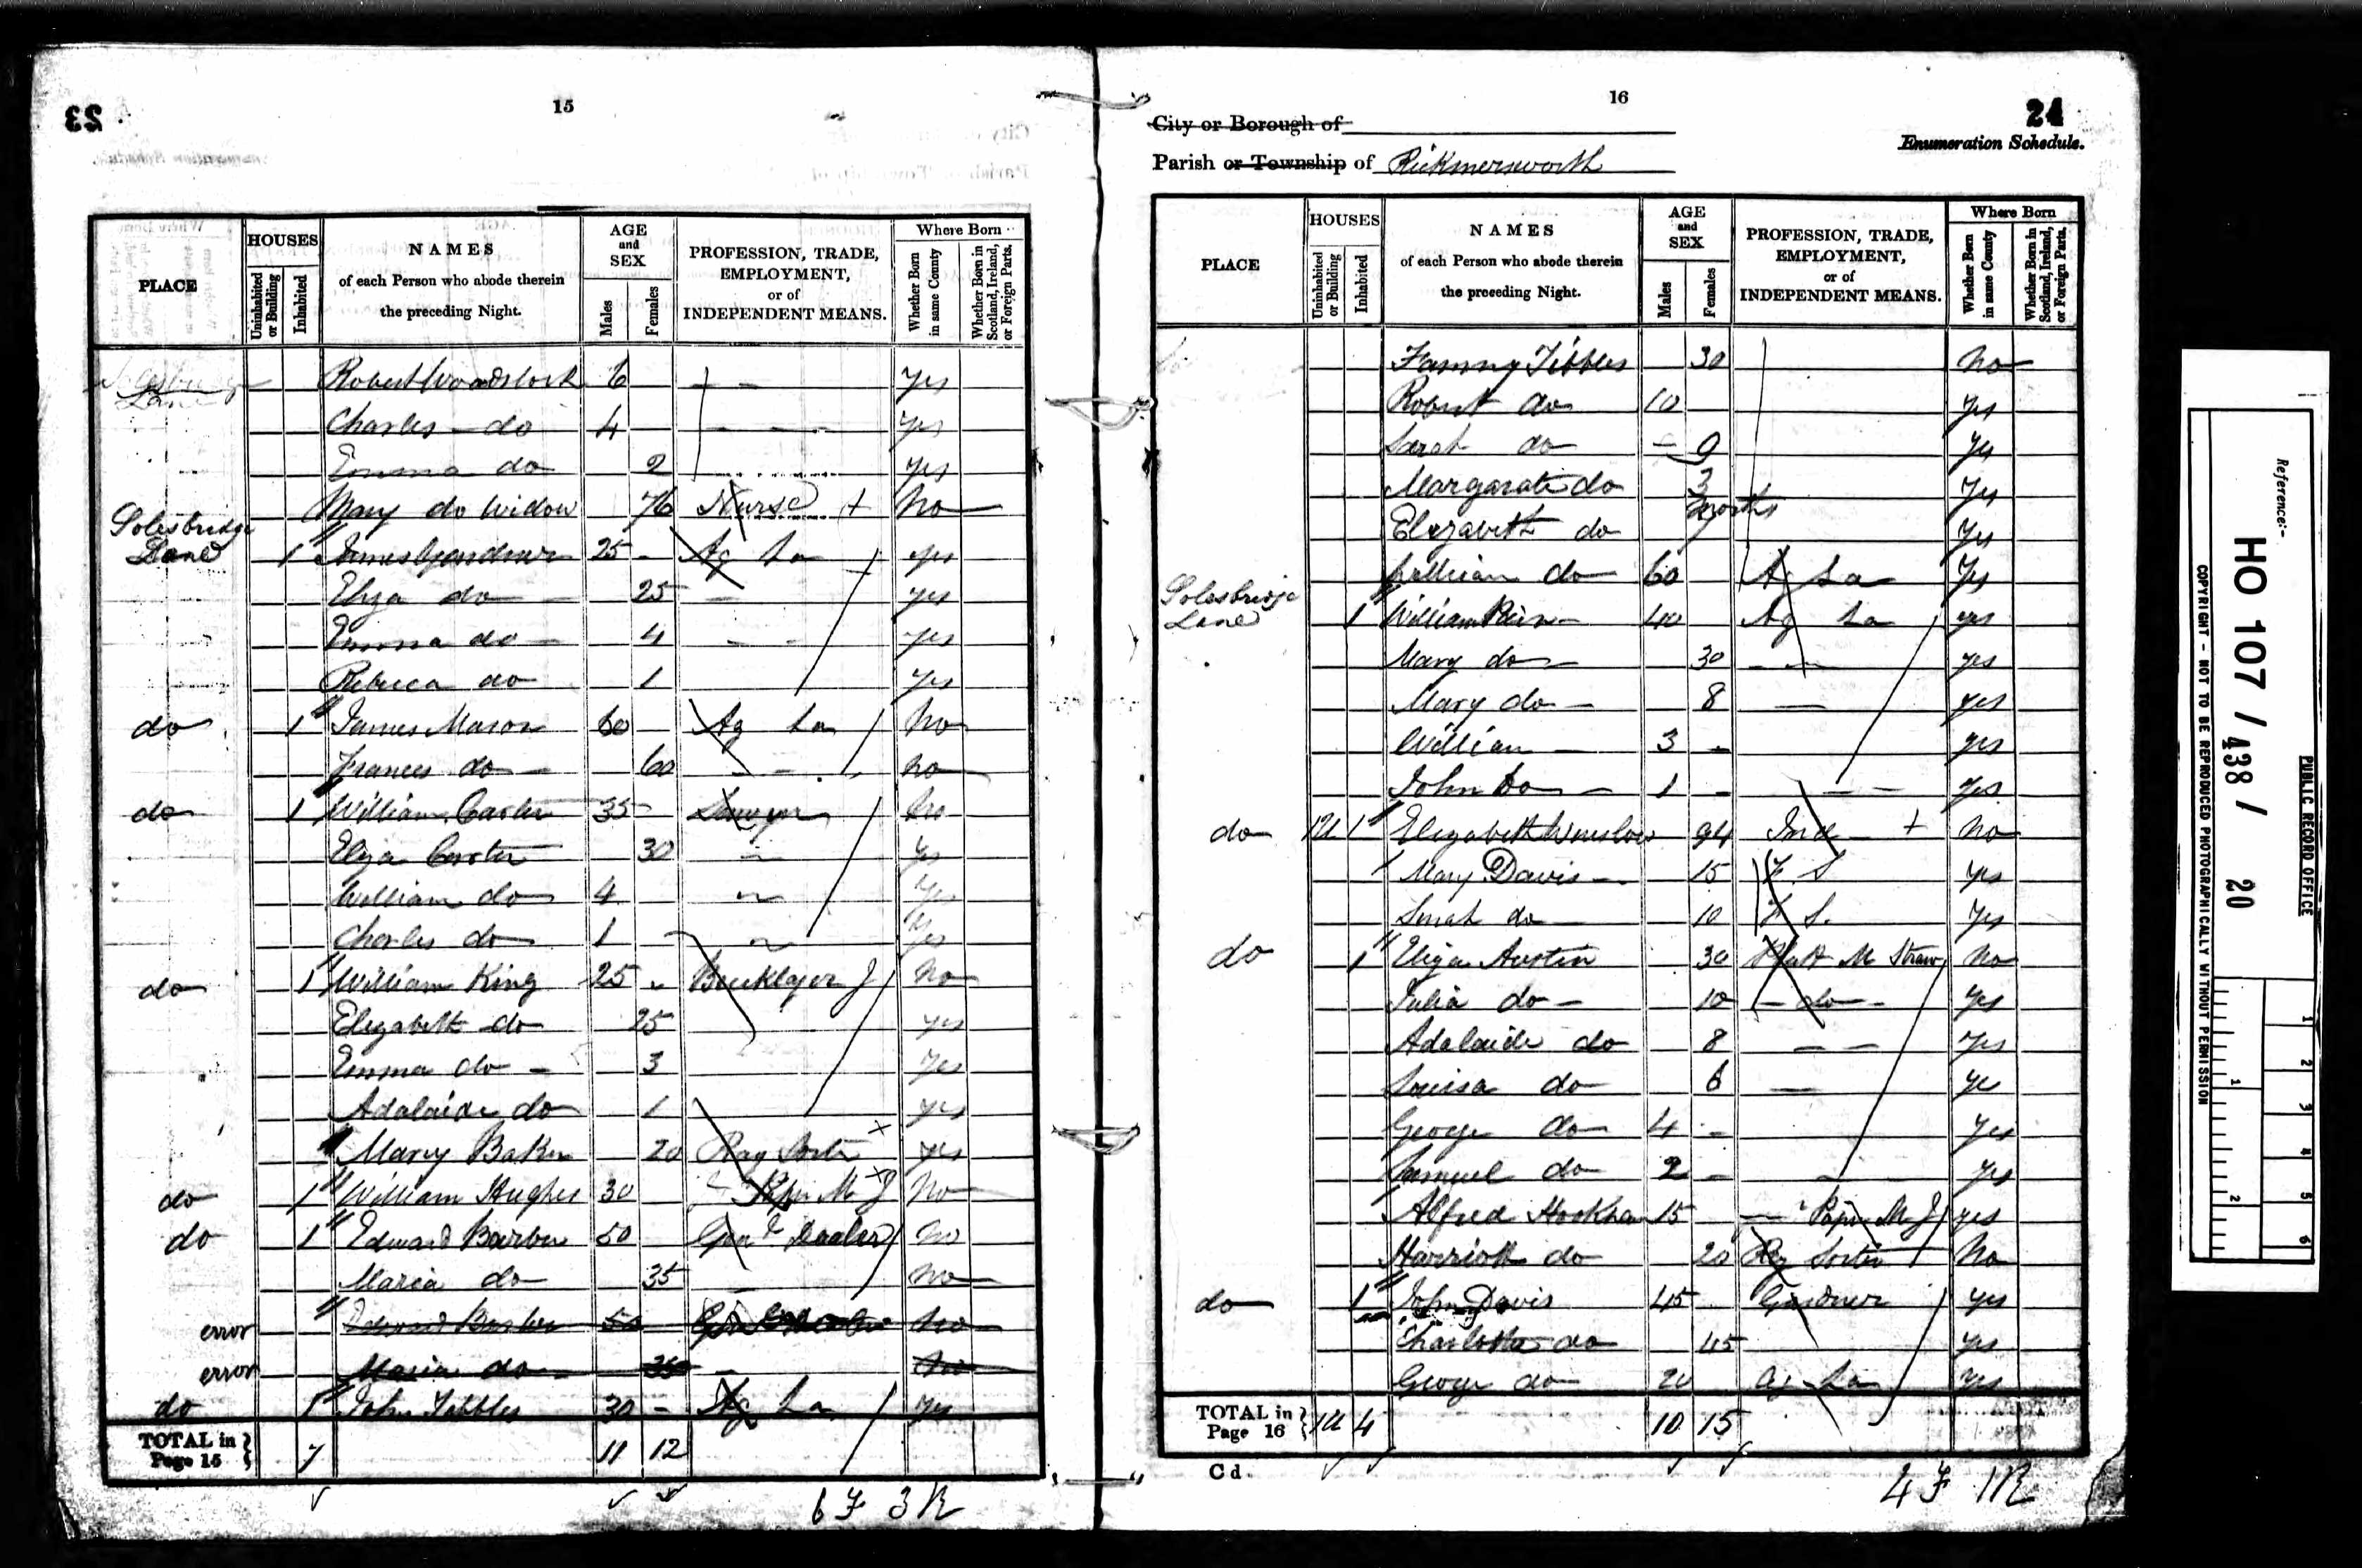 23
15
PLACE
HOUSES
Uninhabited or Building
Inhabited
NAMES
of each Person who abode therein
the preceding Night.
AGE
and
SEX
Males
Females
PROFESSION, TRADE,
EMPLOYMENT,
or of
INDEPENDENT MEANS.
Where Born
Whether Born in same County
Whether Born in Scotland, Ireland, or Foreign Parts.
Lane Robert Woodstock 6 Yes
Charles do 4 Yes
Emma do 2 Yes
Mary do Widow 76 Nurse + No
Solesbridge
Lane 1 James Gardner 25 Ag La yes
Eliza do 25 yes
Emma do 4 yes
Rebecca do 1 Yes
do 1 James Mason 60 Ag La No
Frances do 60 no
do 1 William Carter 35 Sawyer No
Eliza Carter 30 Yes
William do 4 Yes
Charles do 1 Yes
do 1 William King 25 Bricklayer J No
Elizabeth do 25 yes
Emma do 3 Yes
Adalaide do 1 yes
Mary Baker 20 Rag Sorter x yes
do 1 William Hughes 30 Paper M J No
do 1 Edward Barber 50 Genl Dealer No
Maria do 35 No
error Edward Barber 50 No
error Maria do 35 No
do 1 John Tibbles 30 Ag La Yes
TOTAL in
Page 15 7 11 12
6 F 3 R
16
24
City or Borough of
Enumeration Schedule.
Parish or Township of Rickmersworth
PLACE
HOUSES
Uninhabited or Building
Inhabited
NAMES
of each Person who abode therein
the preceding Night.
AGE
and
SEX
Males
Females
PROFESSION, TRADE,
EMPLOYMENT,
or of
INDEPENDENT MEANS.
Where Born
Whether Born in same County
Whether Born in Scotland, Ireland, or Foreign Parts.
Fanny Tibbles 30 No
Robert do 10 Yes
Sarah do 9 Yes
Margarate do 3 Yes
months
Elizabeth do Yes
William do 60 Ag La Yes
Solesbridge
Lane 1 William 40 Ag La yes
Mary do 30 yes
Mary do 8 yes
William 3 yes
John Do 1 Yes
do 1U 1 Elizabeth Winslow 94 Ind + No
Mary Davis 15 F. S Yes
Sarah do 10 F S. Yes
do 1 Eliza Austin 30 Platt M Straw No
Julia do 10 do Yes
Adalaide do 8 Yes
Louisa do 6 Ye
George do 4 Yes
Samuel do 2 Yes
Alfred Hookham 15 Paper M J yes
Harriott do 20 Rag Sorter No
do 1 John Davis 45 Gardner yes
Charlotte do 45 yes
George do 20 Ag La Yes
TOTAL in
Page 16 1U 4 10 15
Cd.
4 F 1R
Reference:-
HO 107 / 438 / 20
PUBLIC RECORD OFFICE
COPYRIGHT - NOT TO BE REPRODUCED PHOTOGRAPHICALLY WITHOUT PERMISSION
1
2
3
4
5
6
1
2